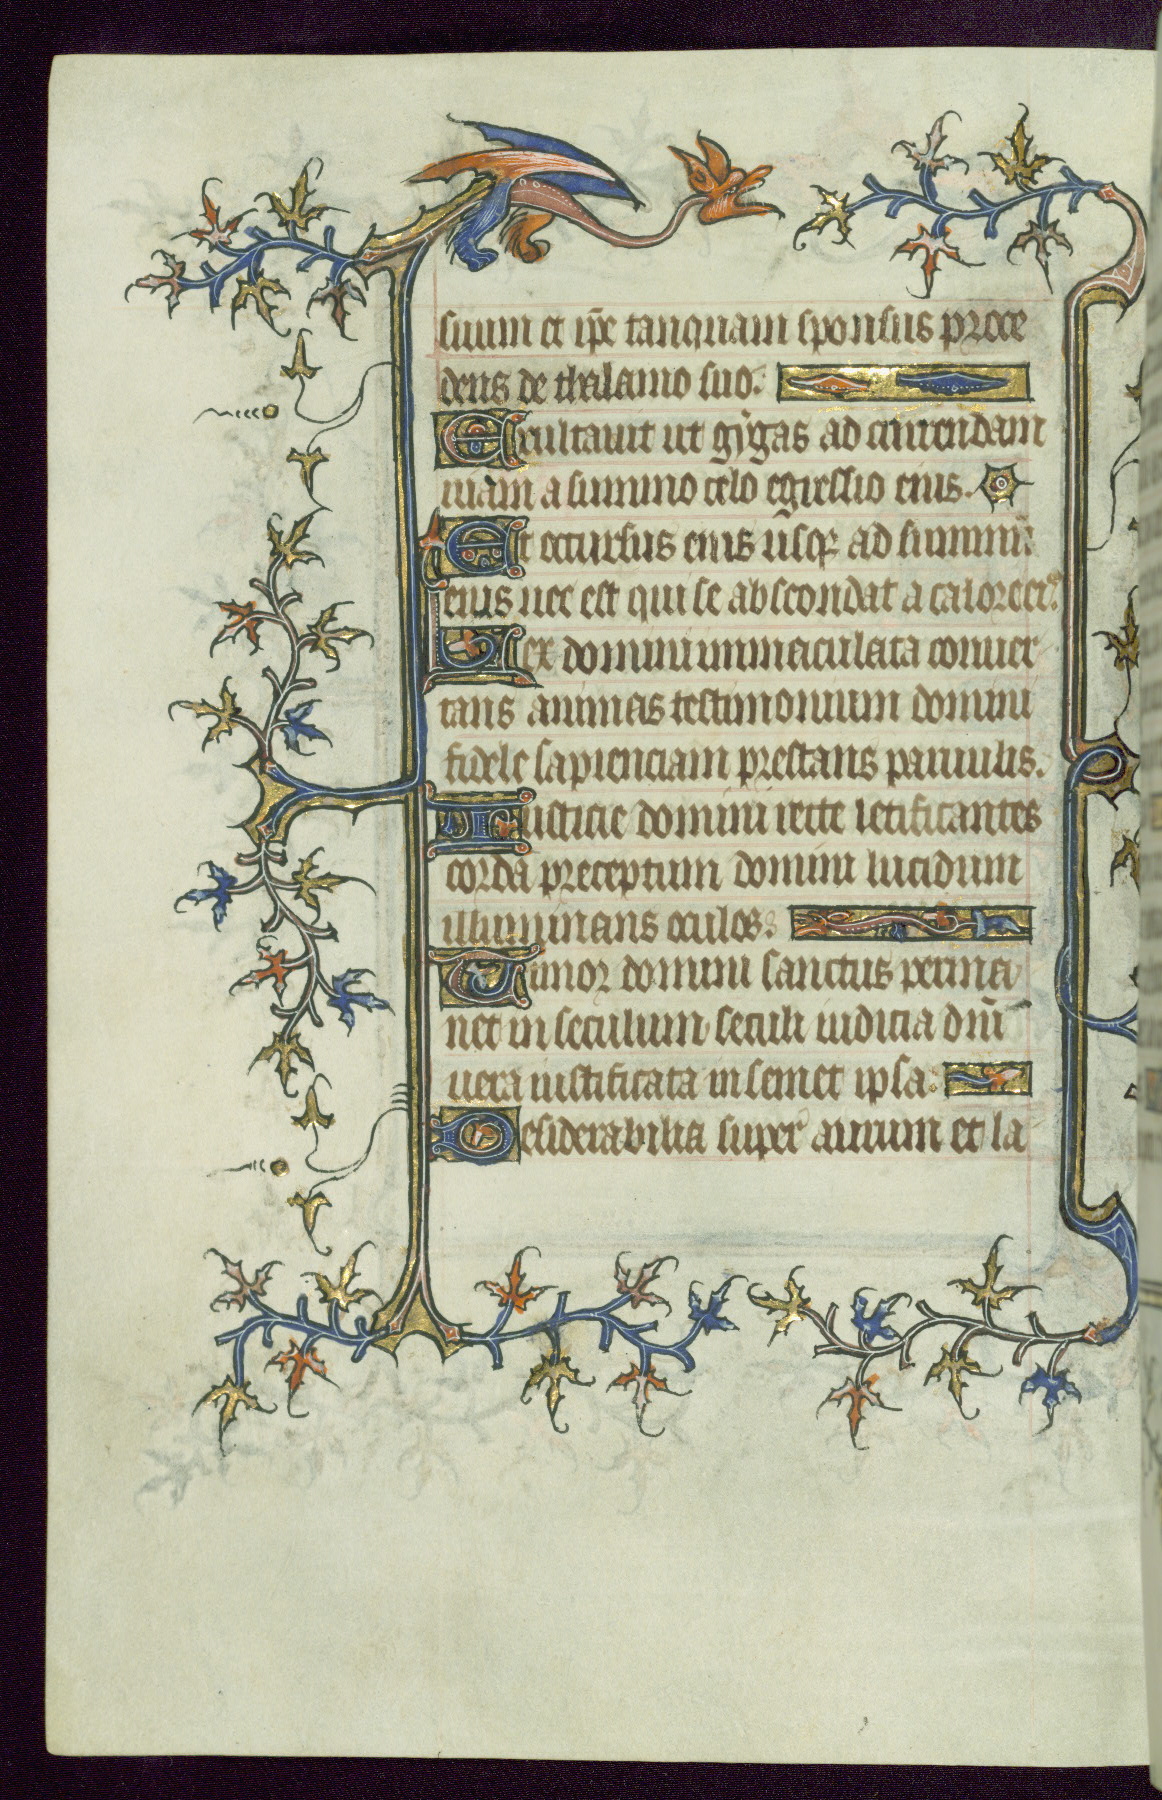 suum et ip̄e tanquam sponsus proce
dens de thalamo suo.
Exultauit ut gygas ad currendam
uiam a summo celo egressio eius.
Et occursus eius usq; ad summū
eius nec est qui se abscondat a calore ei⁹.
Lex domini inmaculata conuer
tans animas testimonium domini
fidele sapienciam prestans paruulis.
Iusticie domini recte letificantes
corda preceptum domini lucidum
illuminans oculos.
Timor domini sanctus perma
net in seculum seculi iudicia dn̄i
uera iustificata in semet ipsa.
Desiderabilia super aurum et la